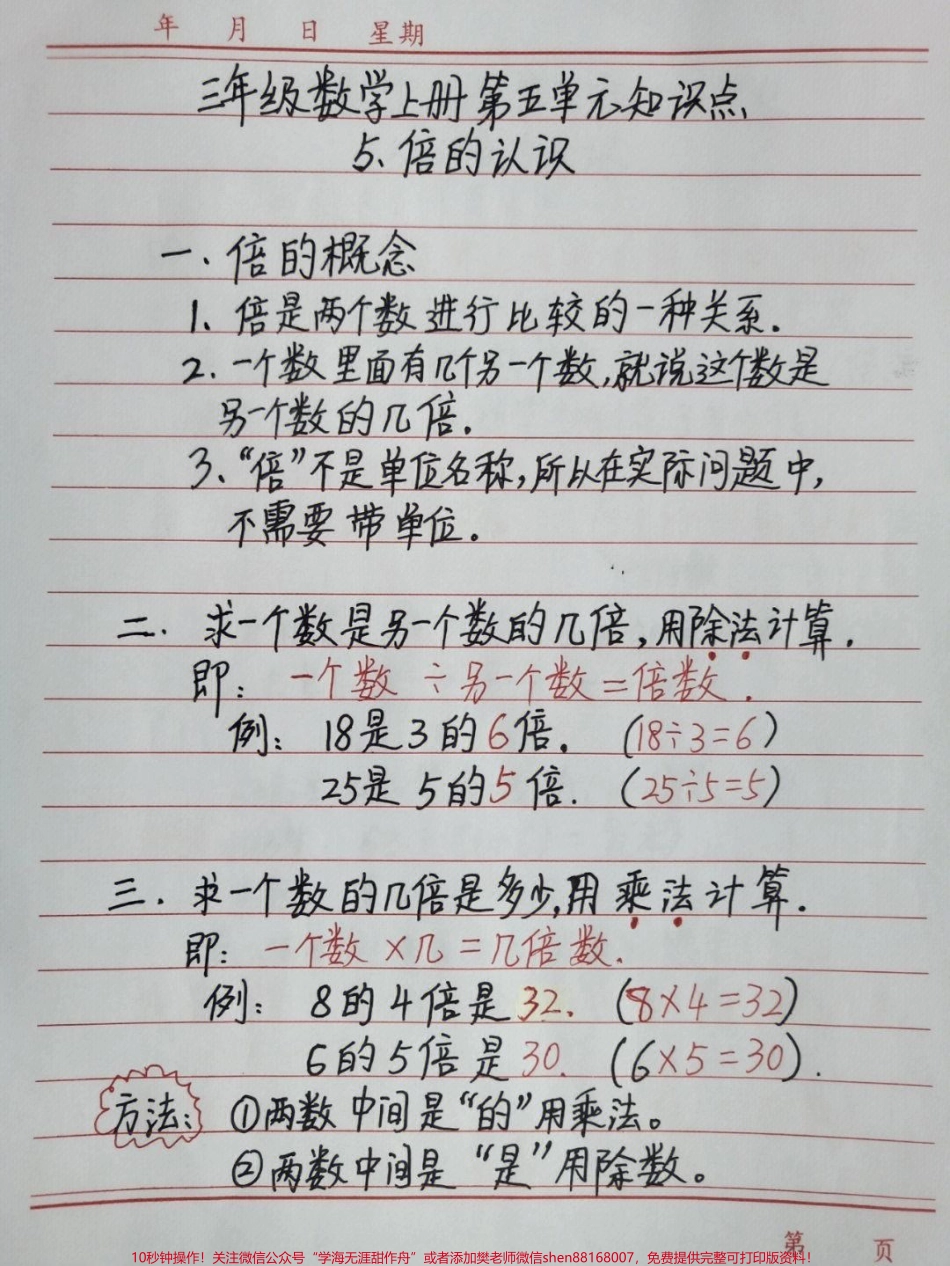 年 月 日 星期
三年级数学上册第五单元知识点
5、倍的认识
一、倍的概念
1、倍是两个数进行比较的一种关系.
2、一个数里面有几个另一个数,就说这个数是
另一个数的几倍.
3、“倍”不是单位名称,所以在实际问题中,
不需要带单位。
二、求一个数是另一个数的几倍,用除法计算.
即: 一个数÷另一个数=倍数.
例: 18是3的6倍. (18÷3=6)
25是5的5倍. (25÷5=5)
三、求一个数的几倍是多少,用乘法计算.
即: 一个数×几=几倍数.
例: 8的4倍是32. (8×4=32)
6的5倍是30. (6×5=30).
方法: ①两数中间是“的”用乘法。
②两数中间是“是”用除数。
第 页
10秒钟操作!关注微信公众号“学海无涯甜作舟”或者添加樊老师微信shen88168007,免费提供完整可打印版资料!